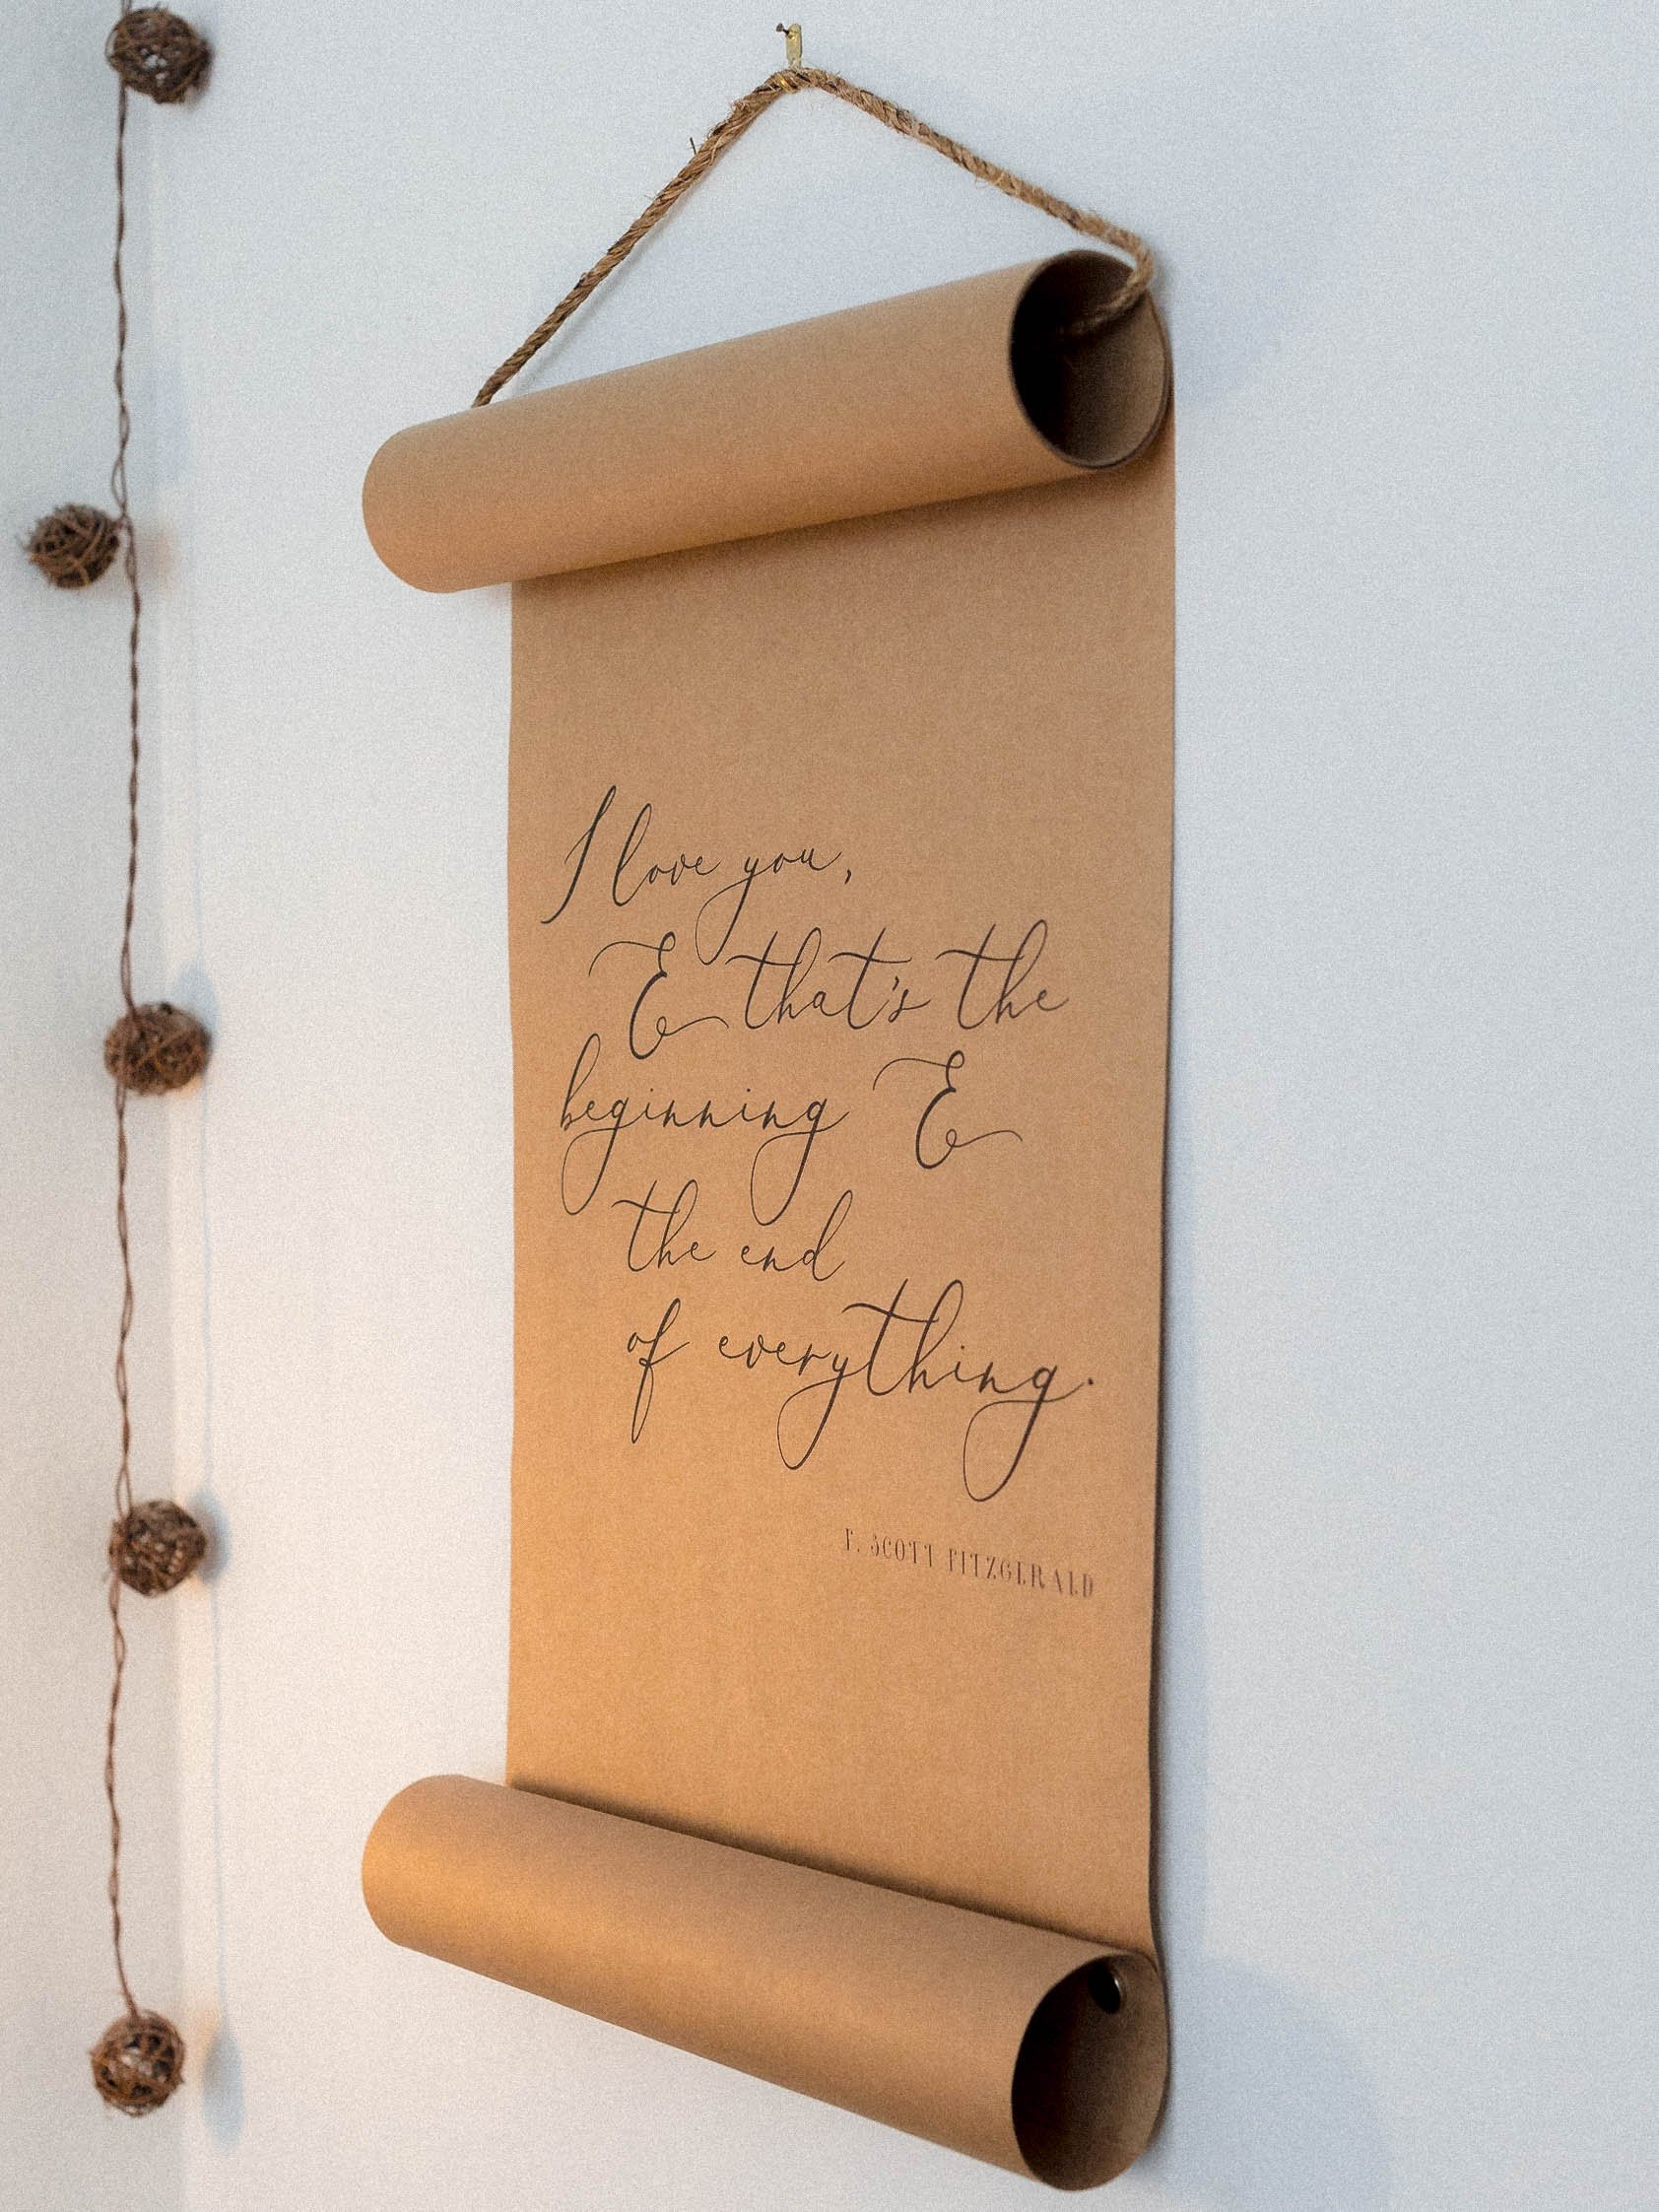 I love you,
& that's the
beginning &
the end
of everything.
F. SCOTT FITZGERALD